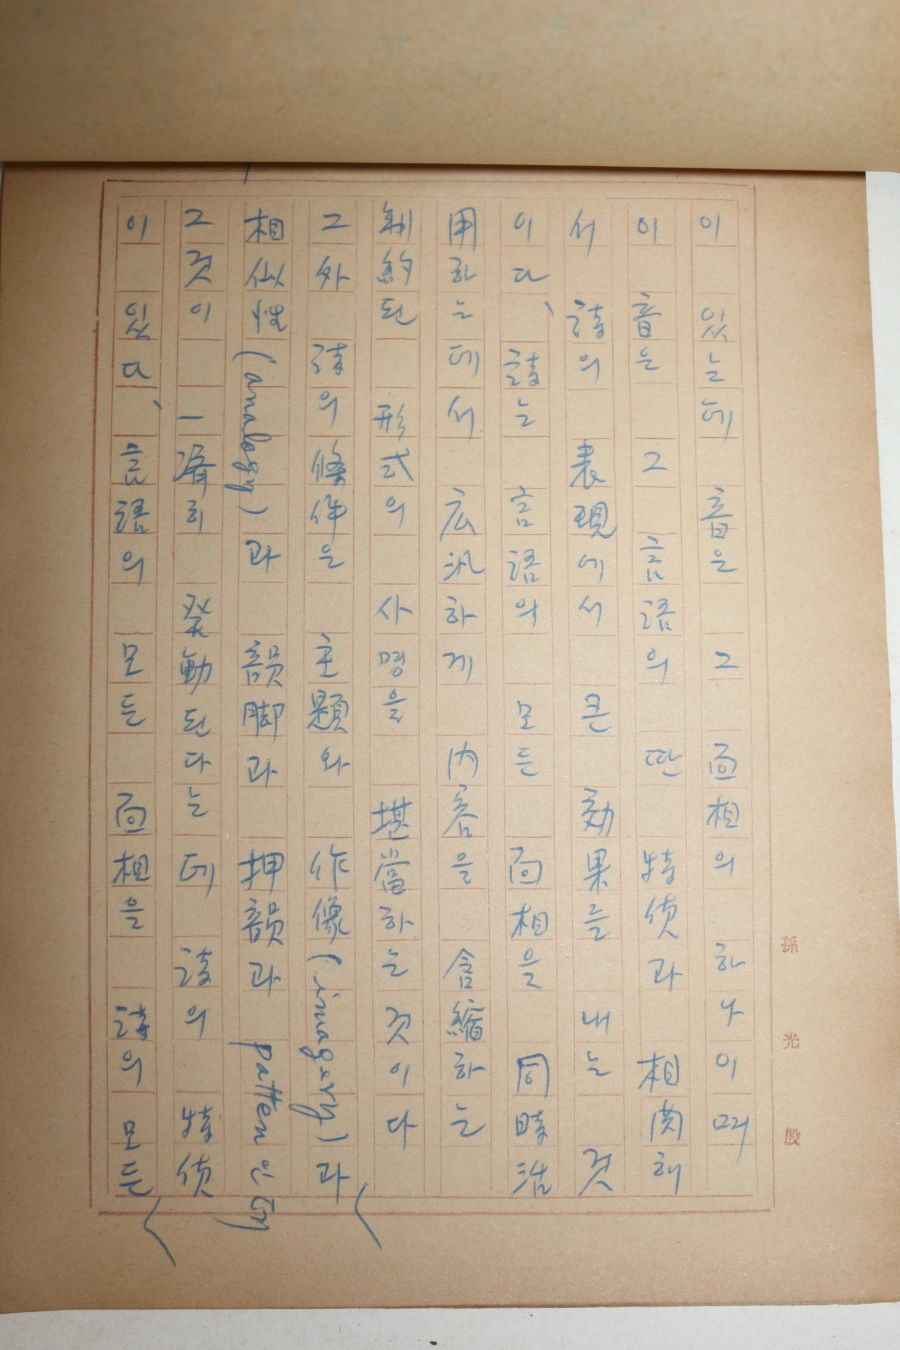 이 있는데 音은 그 面相의 하나이며
이 音은 그 言語의 딴 特質과 相関해
서 詩의 表現에서 큰 効果를 내는 것
이다、詩는 言語의 모든 面相을 同時活
用하는데서 広汎하게 內容을 含縮하는
制約된 形式의 사명을 堪當하는 것이다
그外 詩의 條件은 主題와 作像(imagery)과
相似性(analogy)과 韻脚과 押韻과 patten은
그것이 一濟히 發動된다는데 詩의 特質
이 있다、言語의 모든 面相을 詩의 모든
孫光殷